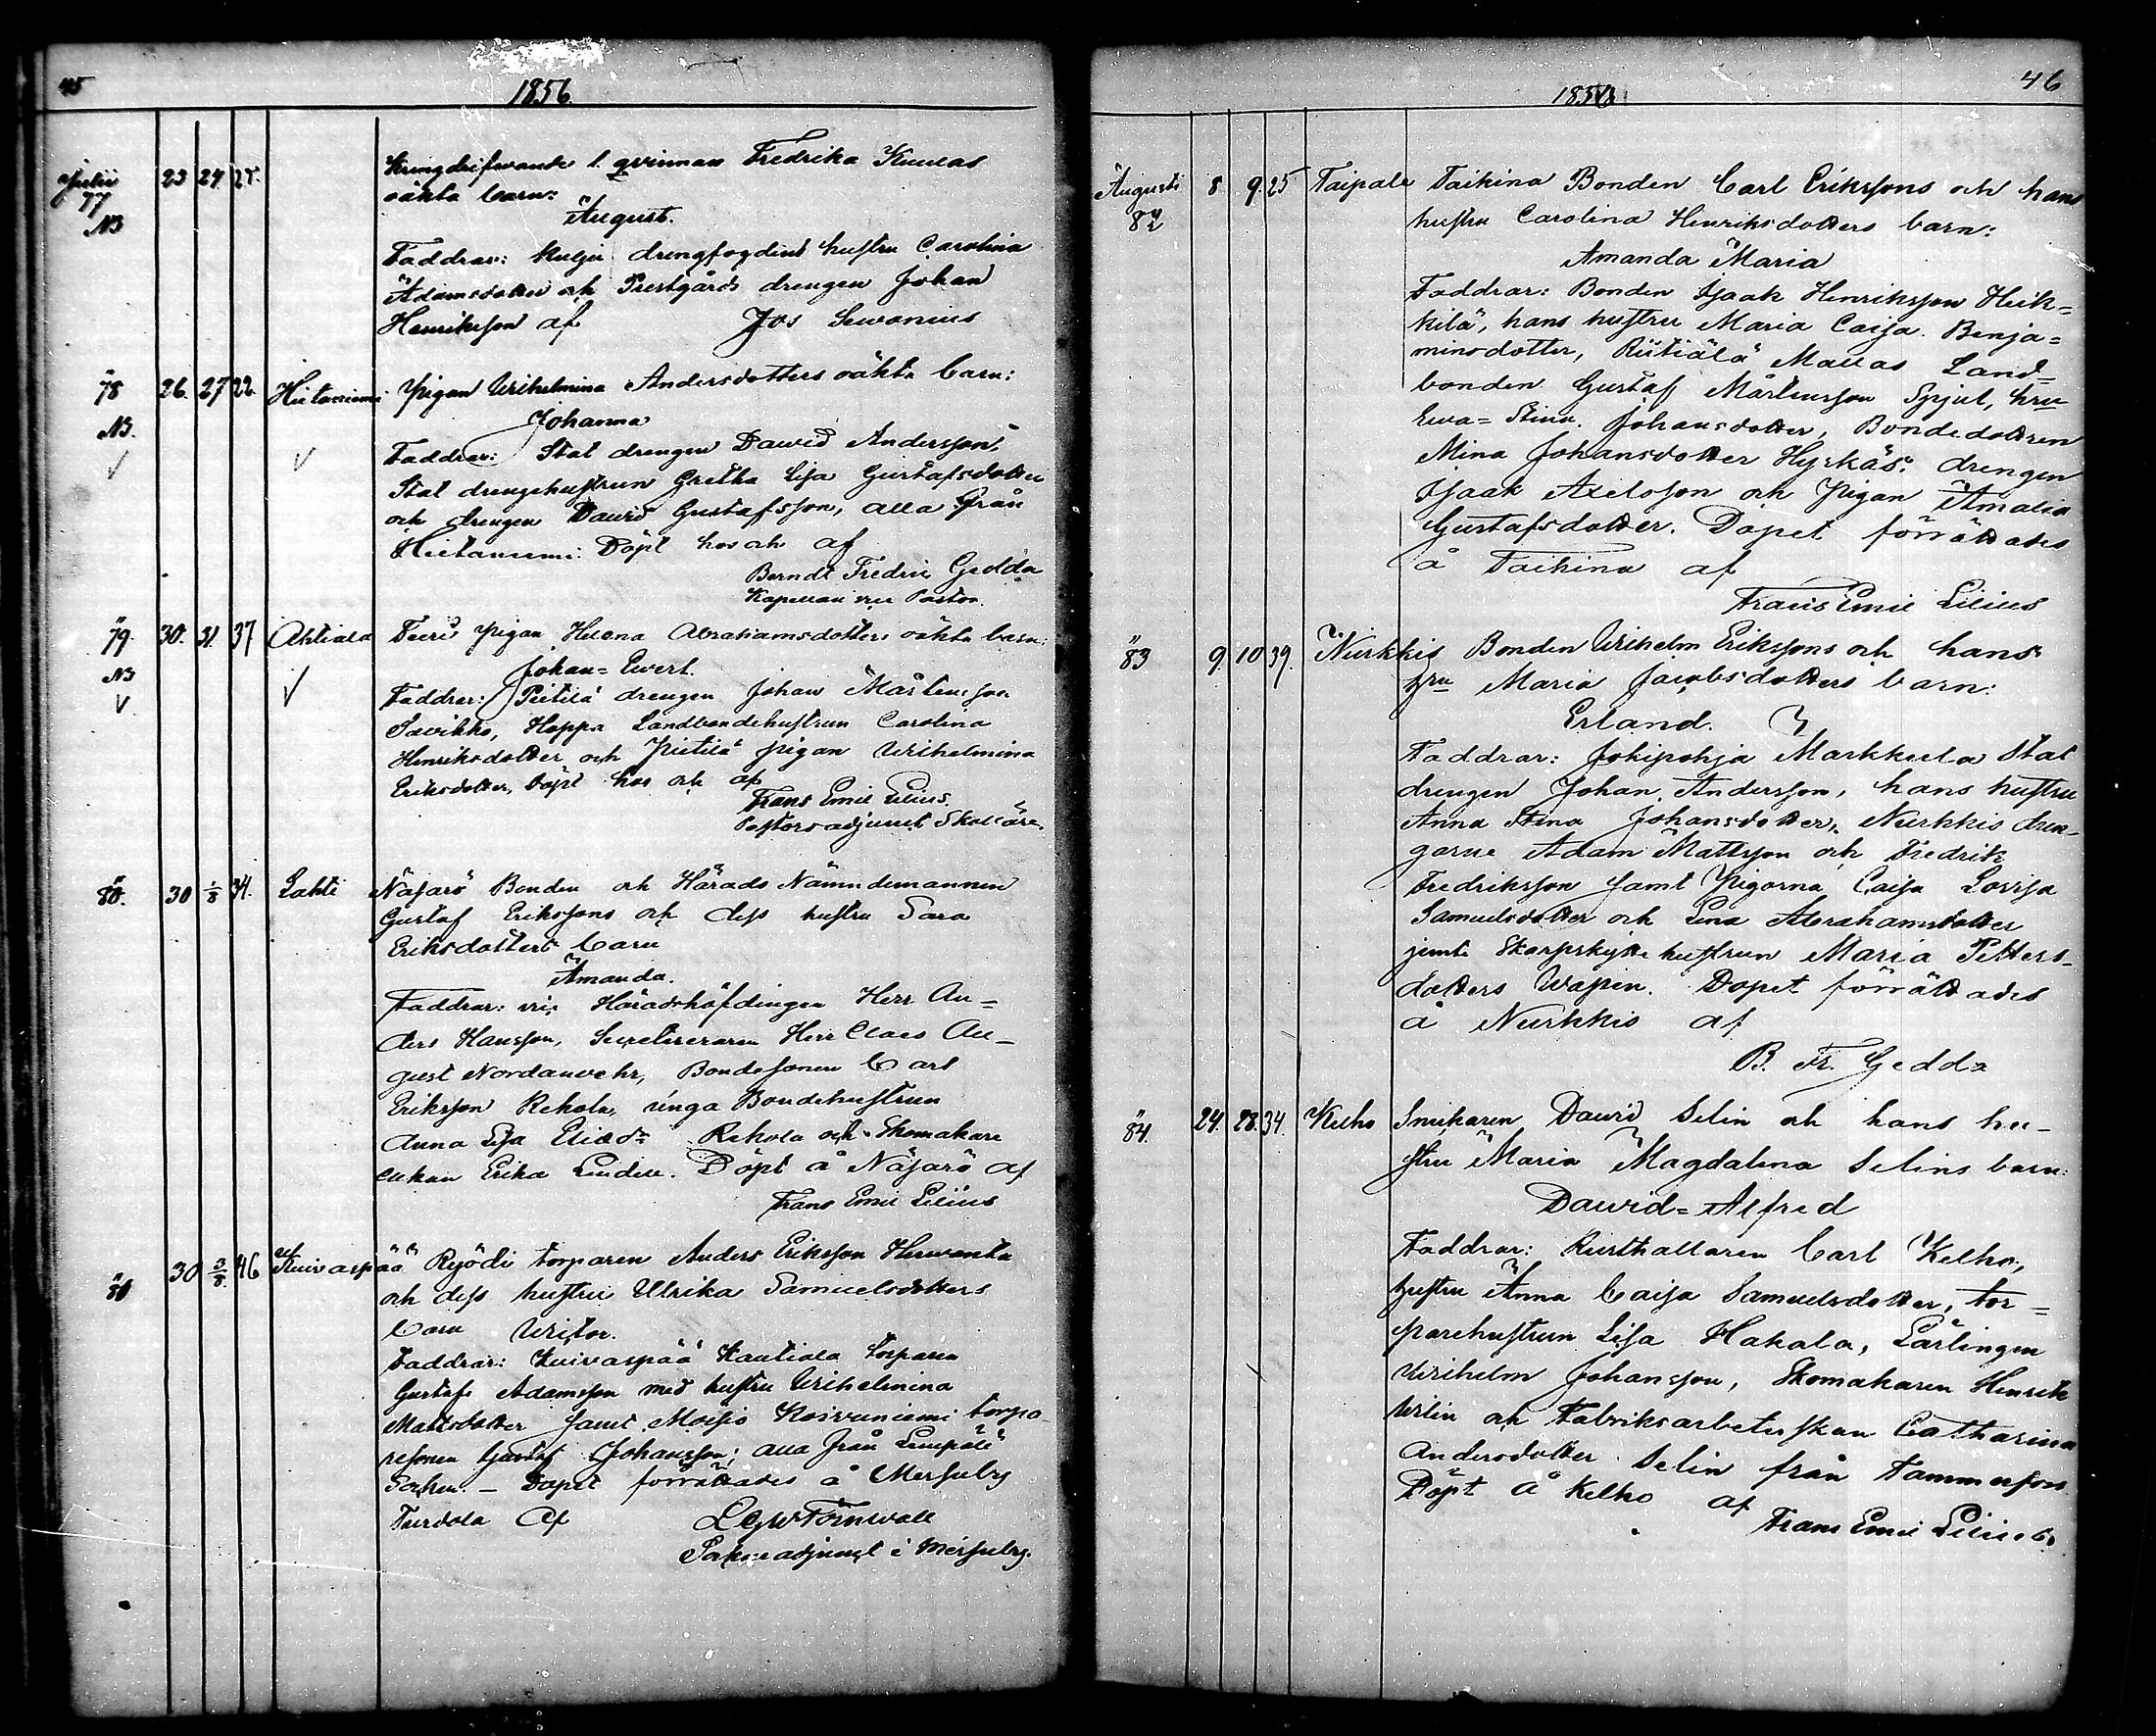 45
1856
Julii 23 24 25. Kringdrifvande l. qvinnan Fredrika
77 oäkta barn:
NB August.
Faddrar: drengfogdens hustru Carolina
Adamsdotter och Prestgårds drengen Johan
Henriksson af Jos Sevonius
78 26. 27 22. Hietaniemi Pigan Wilhelmina Andersdotters oäkta barn:
NB. Johanna
Faddrar: Stat drengen Dawid Andersson,
Stat drengehustrun Gretha Lisa Gustafsdotter
och drengen Dawid Gustafsson, alla från
Hietaniemi. Döpt hos och af
Berndt Fredric Gedda
Kapellan vice Pastor.
79. 30. 31. 37 Ahtiala pigan Helena Abrahamsdotters oäkta barn:
NB Johan=Evert.
Faddrar: Pietilä drengen Johan Mårtensson
Savikko, Hoppa Landbondehustrun Carolina
Henriksdotter och Pietilä pigan Wilhelmina
Eriksdotter, döpt hos och af
Frans Emil Lilius.
Pastorsadjunct
80. 30 1/8 34. Lahti Näsarö Bonden och Härads Nämndemannen
Gustaf Erikssons och dess hustru Sara
Eriksdotters barn
Amanda.
Faddrar: vic. Häradshöfdingen Herr An=
ders Hansson, Herr Claes Au-
gust Nordanvehr, Bondesonen Carl
Eriksson Rekola, unga Bondehustrun
Anna Lisa Eliædr Rekola och Skomakare
enkan Erika Lindell. Döpt å Näsarö af
Frans Emil Lilius
81 30 3/8. 46 Kuivaspää Ryödi torparen Anders Eriksson Herwanta
och dess hustru Ulrika Samuelsdotters
barn Victor.
Faddrar: Kuivaspää Kautiala torparen
Gustaf Adamsson med hustru Wilhelmina
Mattsdotter samt Moisio Koivuniemi torpa-
resonen Gustaf Johansson; alla från Lempälä
Socken. – Dopet förrättades å Messuby
Turvola af Törnwall
adjunct i Messuby.
46
1856
Augusti 8 9 25 Taipale Taikina Bonden Carl Erikssons och hans
82 hustru Carolina Henriksdotters barn:
Amanda Maria
Faddrar: Bonden Isaak Henriksson Heik=
kilä, hans hustru Maria Caisa Benja=
minsdotter, Riitiälä Mallas Land=
bonden Gustaf Mårtensson Spjut, hru
Ewa=Stina Johansdotter, Bondedottren
Mina Johansdotter Hyrkäs, drengen
Isaak Axelsson och Pigan Amalia
Gustafsdotter. Dopet förrättades
å Taikina af
Frans Emil Lilius
83 9. 10 39. Nurkkis Bonden Wilhelm Erikssons och hans
hru Maria Jacobsdotters barn:
Erland.
Faddrar: Jokipohja Markkula Stat
drengen Johan Andersson, hans hustru
Anna Stina Johansdotter, Nurkkis dren-
garne Adam Mattsson och Fredrik
Fredriksson samt Pigorna Caisa Lovisa
Samuelsdotter och Lena Abrahamsdotter
jemte Skarpskytte hustrun Maria Petters-
dotters Wapen. Dopet förrättades
å Nurkkis af
B. Fr. Gedda
84. 24. 28. 34. Kelho Snickaren Dawid Selin och hans hu-
stru Maria Magdalena Selins barn:
Dawid=Alfred
Faddrar: Rusthållaren Carl Kelho,
hustru Anna Caisa Samuelsdotter, tor=
parehustrun Lisa Hakala, Lärlingen
Wilhelm Johansson, Skomakaren Henrik
Wilin och Fabriksarbeterskan Catharina
Andersdotter Selin från Tammerfors
Döpt å Kelho af
Frans Emil Lilius.